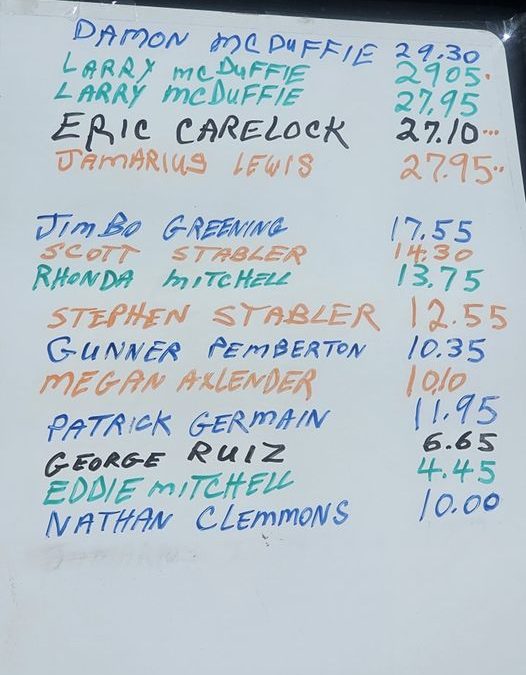 DAMON MCDUFFIE 29.30
LARRY McDUFFIE 2905.
LARRY McDUFFIE 27.95
ERIC CARELOCK 27.10...
JAMARIUS LEWIS 27.95..
JIMBO GREENING 17.55
SCOTT STABLER 14.30
RHONDA MITCHELL 13.75
STEPHEN STABLER 12.55
GUNNER PEMBERTON 10.35
MEGAN AXLENDER 1010
PATRICK GERMAIN 11.95
GEORGE RUIZ 6.65
EDDIE MITCHELL 4.45
NATHAN CLEMMONS 10.00